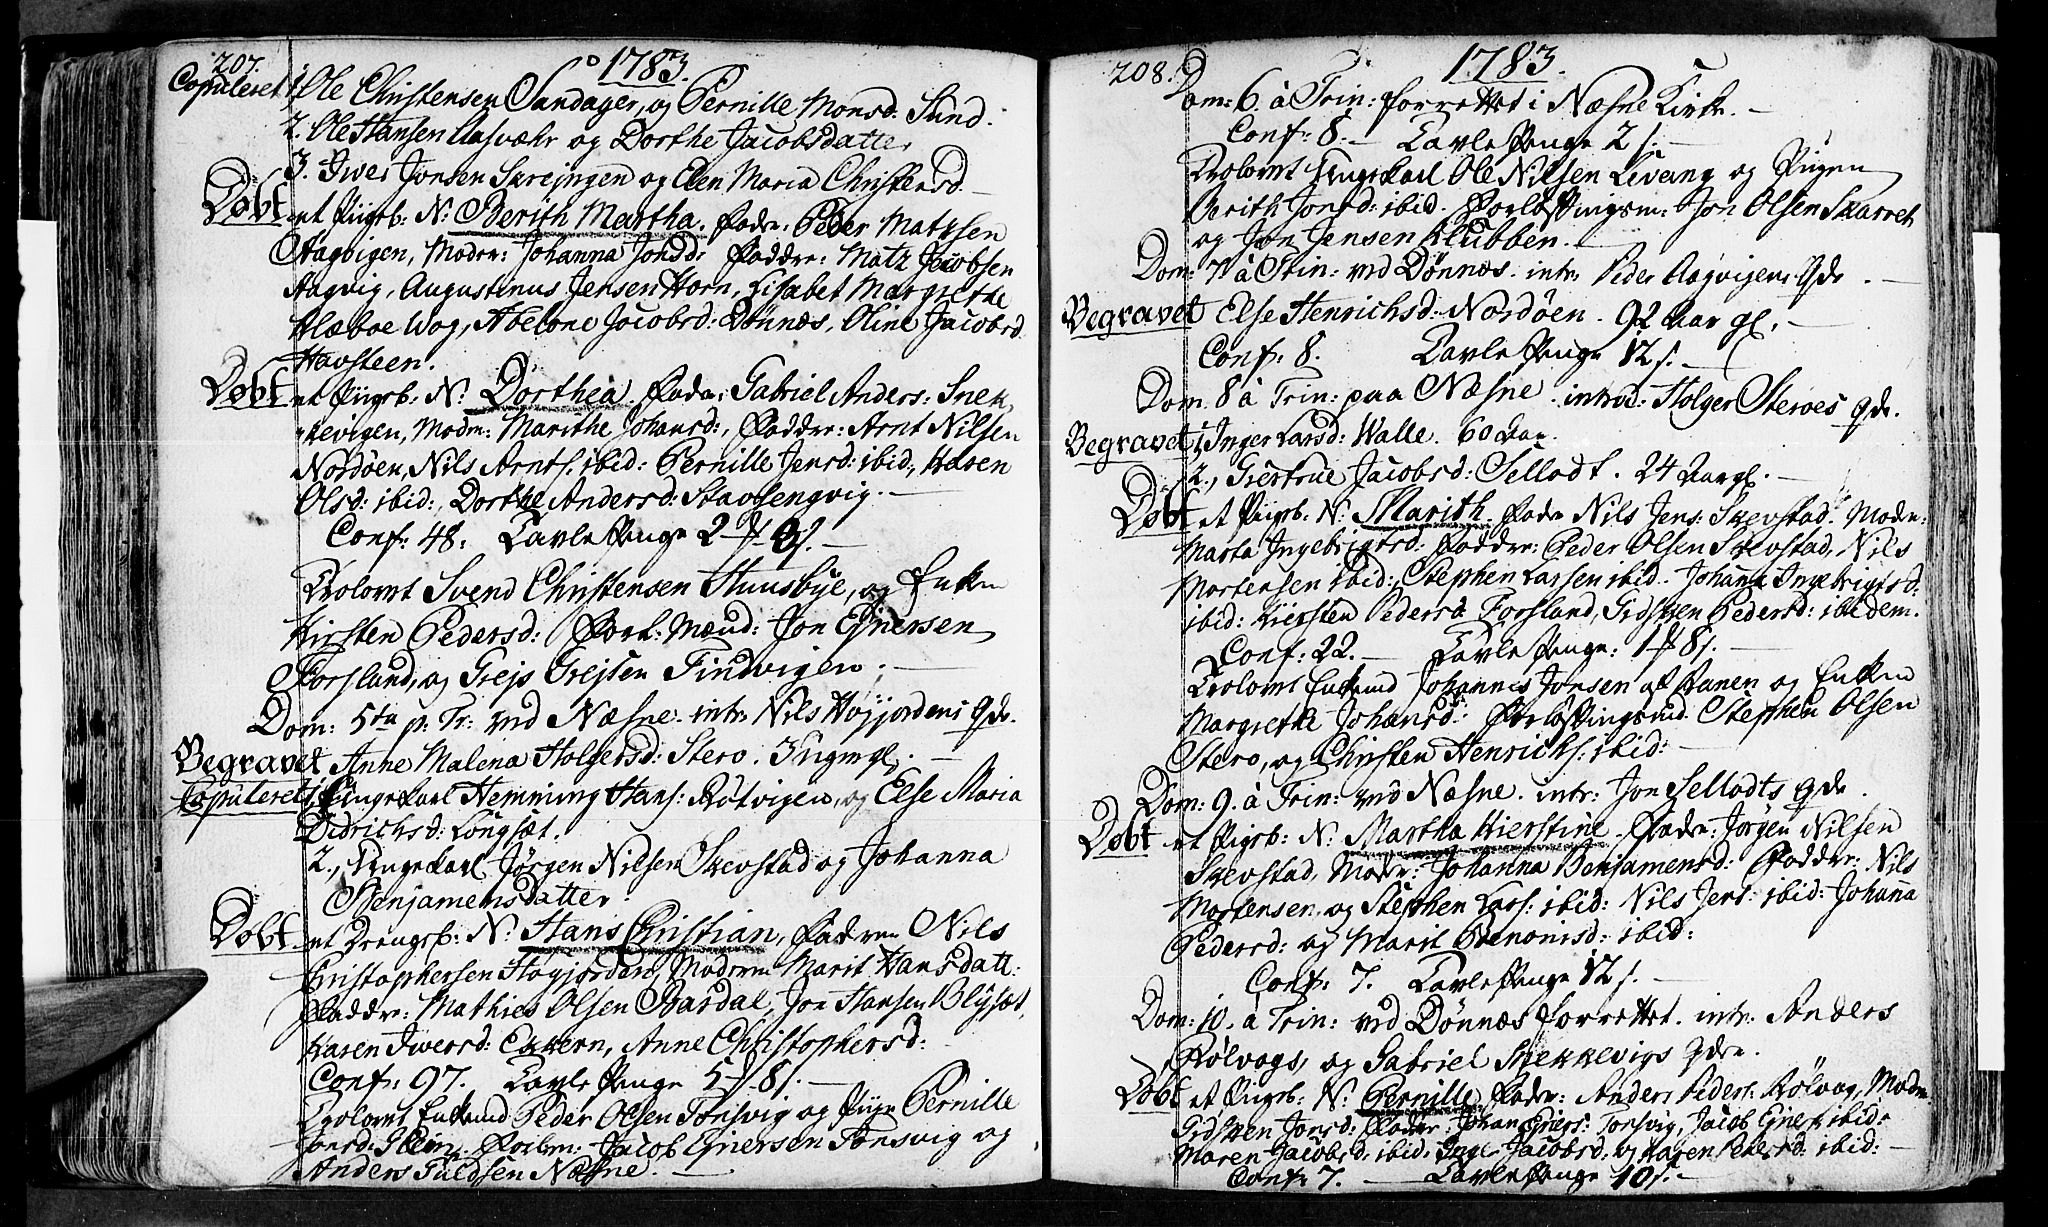 207.
1783.
Copuleret 1, Ole Christensen Sandager, og Pernille Monsd: Sund.
2. Ole Hansen Aasvær og Dorthe Jacobsdatter
3. Iver Jonsen Skeingen og Elen Maria Christensd.
Døbt et Pigeb: N: Berith Martha. Fader: Peder Matzsen
Aagvigen, Moder: Johanna Johsd: Faddre: Matz Jacobsen
Aagvig, Augustinus Jensen Horn, Lisabet Margrethe
Klæboe Wog, Abelone Jacobsd: Dønnæs, Oline Jacobsd
Havsteen.
Døbt et Pigeb: N: Dorthea. Fader: Gabriel Anders: Snek,
kevigen, Moder: Marithe Johansd:, Faddre: Arnt Nilsen
Nordøen, Nils Arnts: ibid: Pernille Jensd: ibid:, Karen
Olsd: ibid:, Dorthe Andersd: Stavsengvig.
Conf: 48. Tavle Penge 2
Trolovet Svend Christensen Huusbye, og Enken
Kirsten Pedersd: Forl: Mænd: Jon Ejnersen
Forsland, og Grejs Grejsen Tindvigen.
Dom: 5ta p. Tr: ved Næsne. intr: Nils Høyjordens Qde.
Begravet Anne Malena Holgersd: Stero. 3 Ugr gl.
Copuleret 1, Ungekarl Hemming Hans: Røtvigen, og Else Maria
Didrichsd: Longsæt.
2., Ungekarl Jørgen Nilsen Skevstad og Johanna
Benjamensdatter.
Døbt et Drengeb: N: Hans Christian, Faderen Nils
Christophersen Høgjorden, Moderen Marit Hansdatt:
Faddre: Mathies Olsen Bardal, Jon Hansen Blysøt,
Karen Iversd: Ekkern, Anne Christophersd:
Conf: 97. Tavle Penge 5 8
Trolovet Enkemd Peder Olsen Tonsvig og Pige Pernille
Jonsd: Forlm: Jacob Ejnersen Tonsvig og
Anders Næsne.
208.
1783.
Dom: 6. à Trin: forrettet i Næsne Kirke.
Conf: 8. Tavle Penge 2
Trolovet Ungekarl Ole Nilsen Levang og Pigen
Berith Jonsd: ibid. Forløftningsm: Jon Olsen Skarvet
og Jon Jensen Klubben.
Dom: 7 à Trin: ved Dønnæs. intr: Peder Aagvigens Qde.
Begravet Else Henrichsd: Nordøen. 92 Aar gl.
Conf: 8. Tavle Penge 12
Dom. 8 à Trin: paa Næsne. introd: Holger Steroes Qde.
Begravet 1, Inger Larsd: Walle. 60 Aar
2., Giertrue Jacobsd: Sellodt. 24 Aar gl.
Døbt et Pigeb. N: Marith. Fader Nils Jens: Skevstad. Moder:
Marta Ingebrigtsd: Faddre: Peder Olsen Skevstad, Nils
Mortensen ibid:, Stephen Larsen ibid. Johana Ingebrigtsd:
ibid: Kiersten Pedersd Forsland, Sidsken Pedersd: ibidem.
Conf: 22. Tavle Penge: 1 8
Trolovet Enkemd Johannes Jonsen af Ranen og Enken
Margrethe Johansd: Forløftningsmd Stephen Olsen
Stero, og Christen Henrichs: ibid:
Dom: 9. à Trin: ved Næsne. intr: Jon Sellodts Qde.
Døbt et Pigeb: N: Martha Kierstine. Fader: Jørgen Nilsen
Skevstad, Moder: Johanna Benjamensd: Faddre: Nils
Mortensen, og Stephen Lars: ibid: Nils Jens: ibid: Johana
Pedersd: og Marit Benonisd: ibid:
Conf: 7. Tavle Penge 12
Dom: 10. à Trin: ved Dønnæs forrettet. intr: Anders
Rølvogs, og Gabriel Snekkevigs Qder.
Døbt et Pigeb: N: Pernille Fader: Anders Peders: Rølvog, Moder
Sidsken Jonsd: Fadder: Johan Ejners: Tonsvig, Jacob Ejners: ibid:
Maren Jacobsd: ibid: Inge Jacobsd: og Karen Petersd: ibid:
Conf: 7. Tavle Penge 10